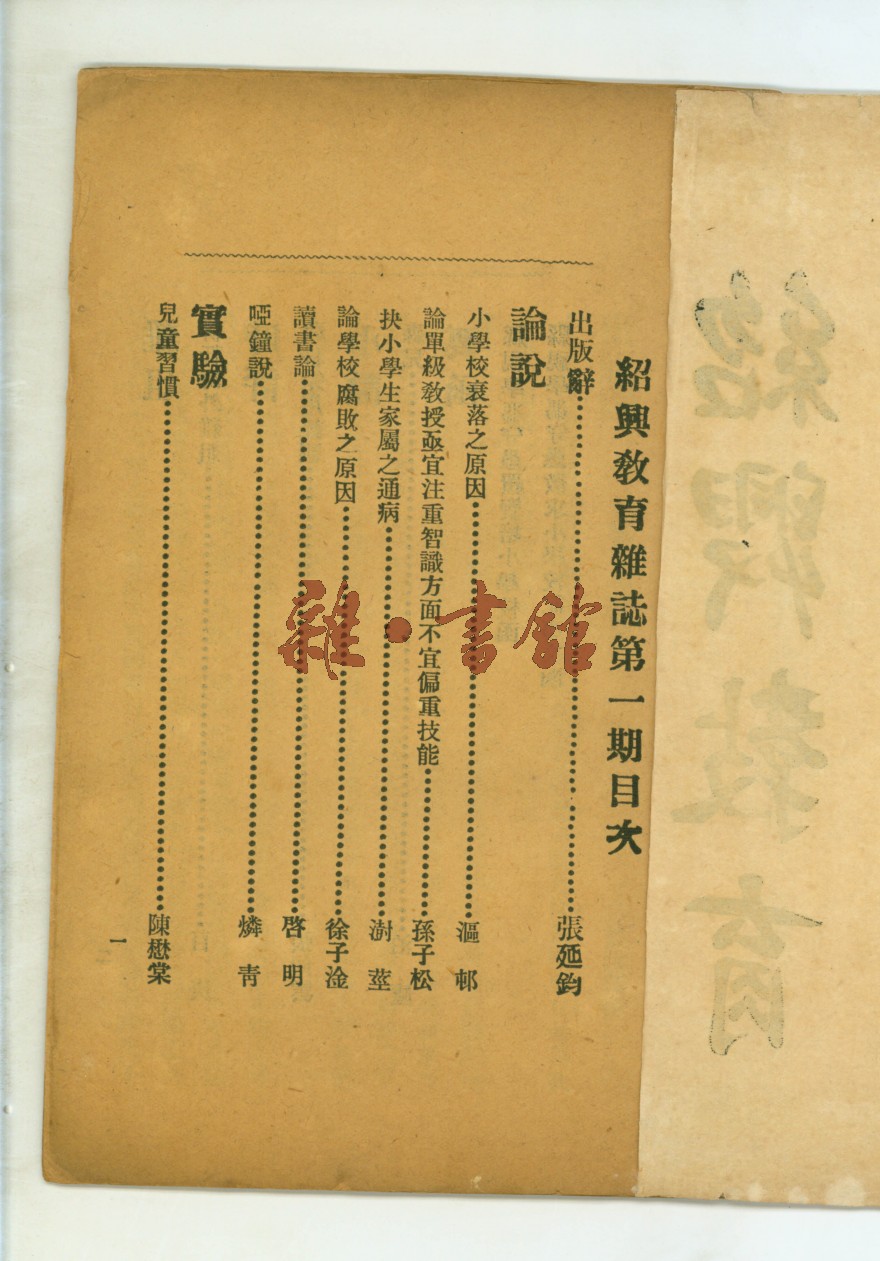 紹興敎育雜誌第一期目次
出版辭 張𨒪鈞
論說
小學校衰落之原因 漚邨
論單級敎授亟宜注重智識方面不宜偏重技能 孫子松
抉小學生家屬之通病 澍莖
論學校腐敗之原因 徐子淦
讀書論 啓明
啞鐘說 燐靑
實驗
兒童習慣 陳懋棠
一
雜·書館